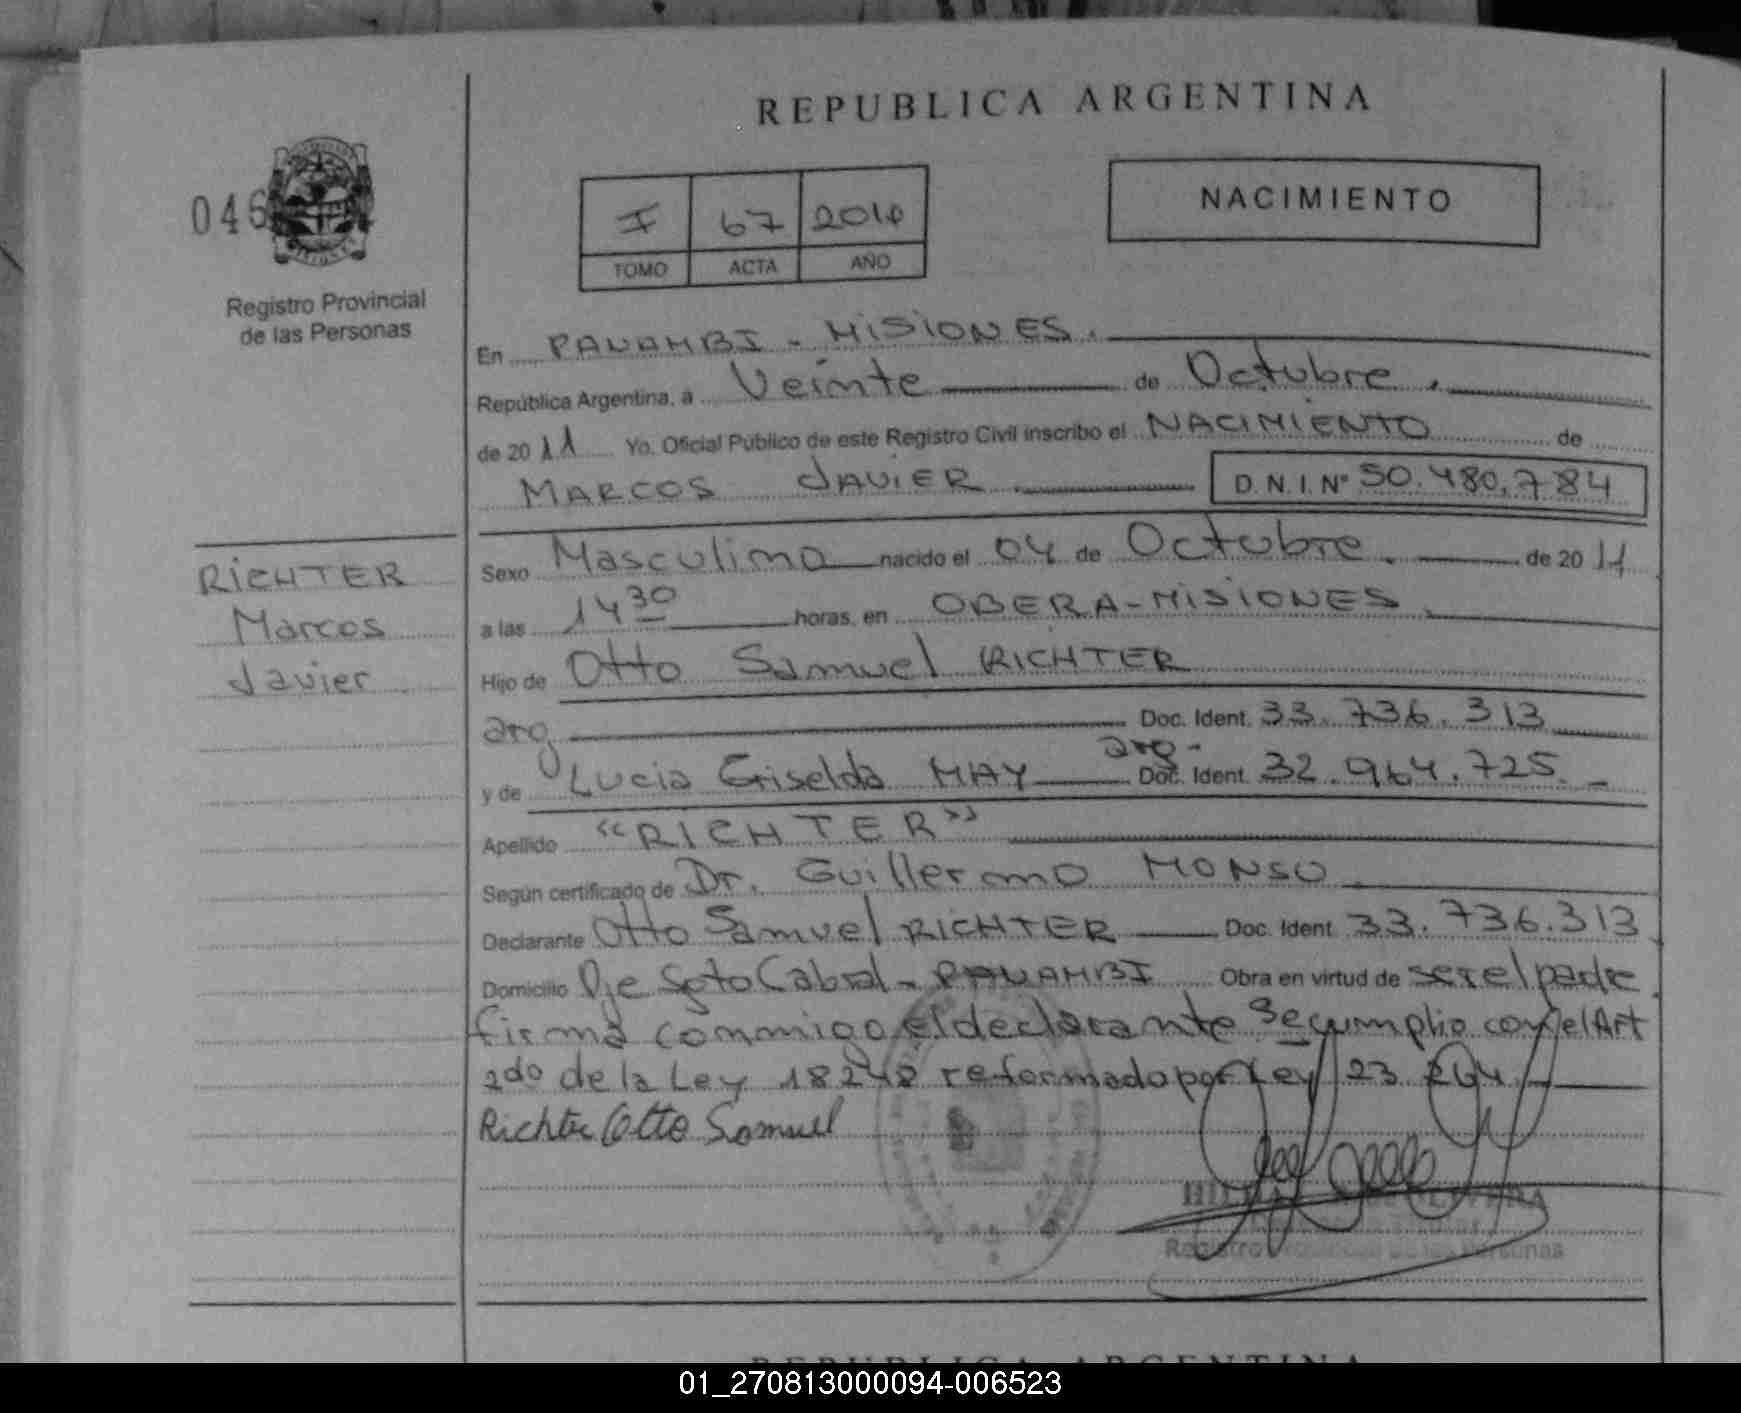 REPUBLICA ARGENTINA
NACIMIENTO
046
I 67
TOMO ACTA AÑO
Registro Provincial
de las Personas
En PANAMBI - MISIONES.
República Argentina, a Veinte de Octubre.
de 2011 Yo. Oficial Público de este Registro Civil inscribo el NACIMIENTO de
MARCOS JAVIER D.N.I. Nº 50.480.784
RICHTER
Marcos
Javier
Sexo Masculino nacido el 04 de Octubre. de 2011
a las 14 30 horas, en OBERA-MISIONES.
Hijo de Otto Samuel RICHTER
arg Doc. Ident. 33.736.313
arg-
y de Lucia Griselda MAY Doc. Ident. 32.964.725.-
Apellido "RICHTER"
Según certificado de Dr. Guillermo MONSO.
Declarante Otto Samuel RICHTER Doc. Ident 33.736.313
Domicilio Pje Sgto Cabral - PANAMBI Obra en virtud de ser el padre.
firma conmigo el declarante Se cumplio con el Art
2do de la Ley 18248 reformado por Ley 23.264.-
Richter Otto Samuel
Registro Provincial de las Personas
REPUBLICA ARGENTINA
01_270813000094-006523